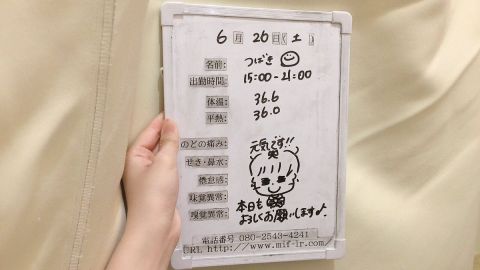 6月26日(土)
名前: つばき
出勤時間: 15:00-21:00
体温: 36.6
平熱: 36.0
のどの痛み:
元気です!!
せき・鼻水:
倦怠感:
味覚異常:
本日も
嗅覚異常:
よろしくお願いします♪
電話番号 080-2543-4241
URL http://www.mif-lr.com/